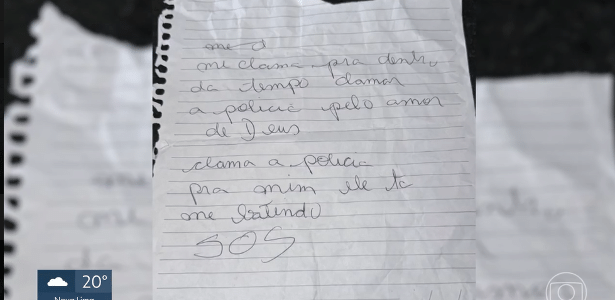 me
me clama pra dentro
da tempo clamar
a policia pelo amor
de Deus
clama a policia
pra mim ele ta
me batendo
SOS
20°
Nova Lima